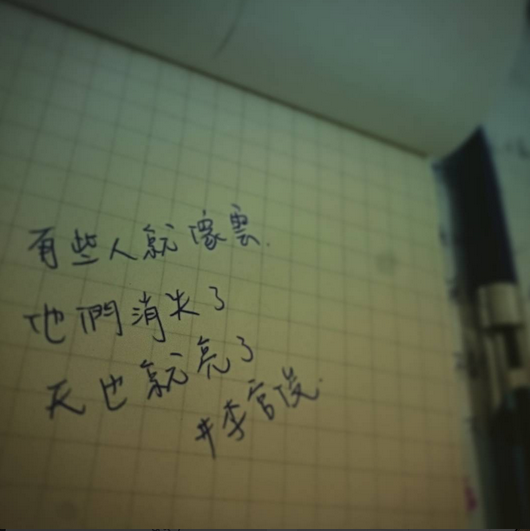 有些人就像雲.
他們消失了
天也就亮了
#李官俊.